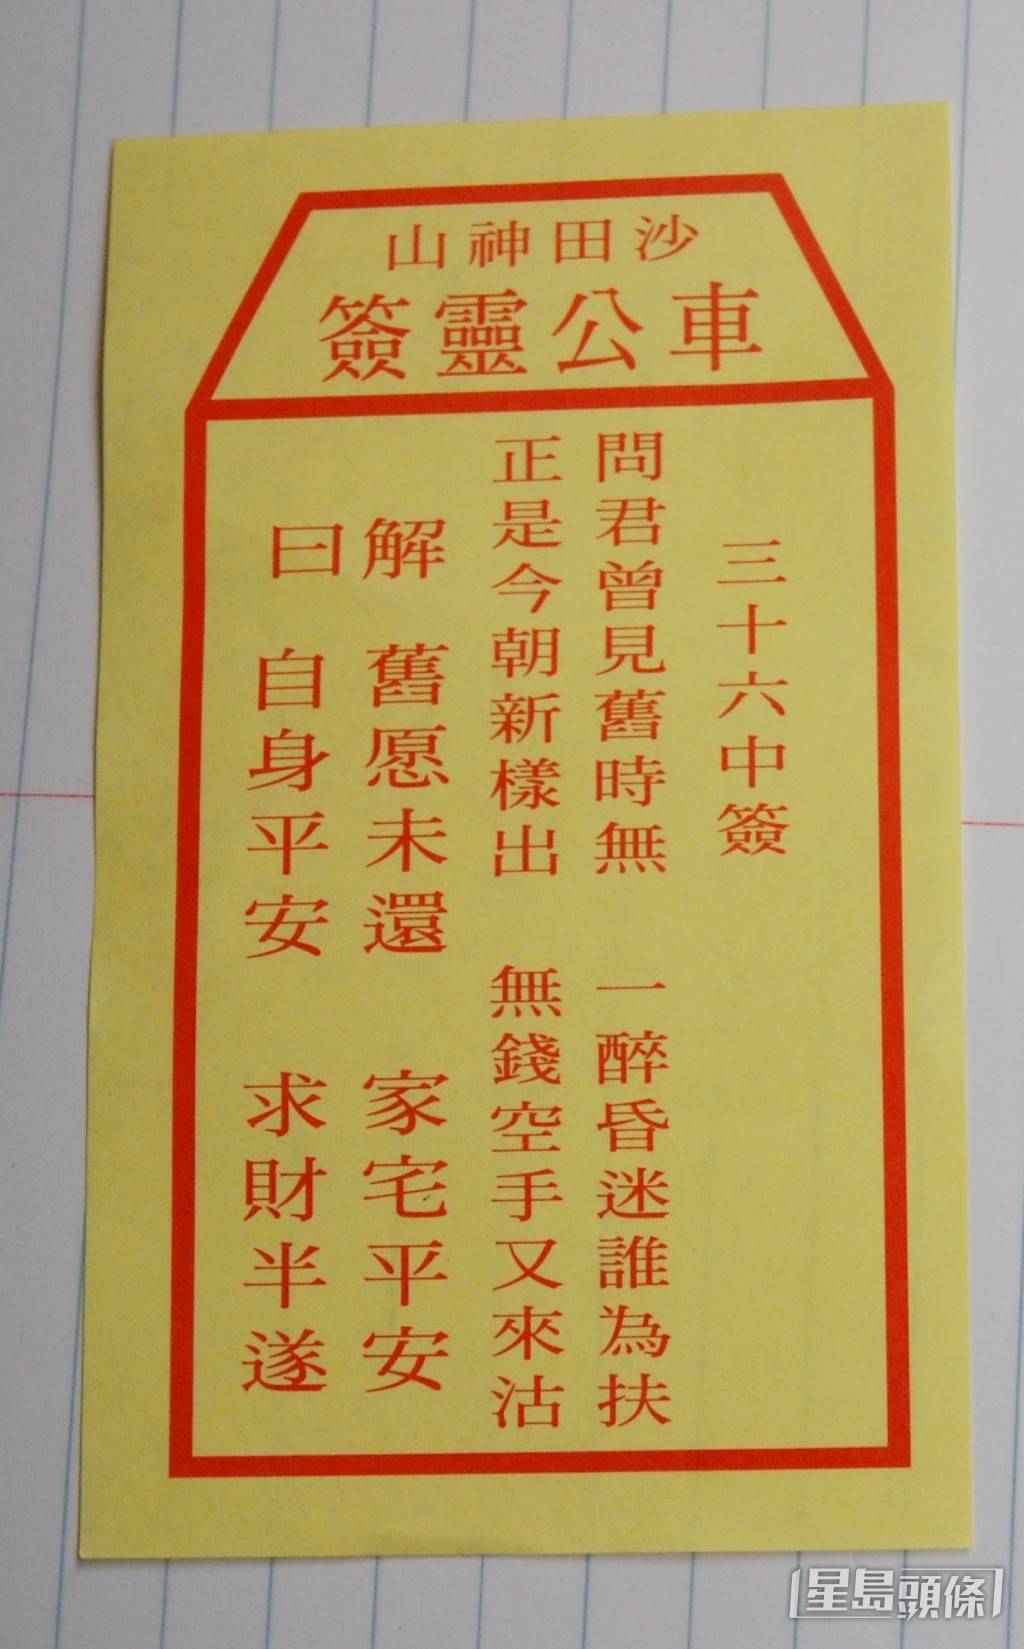 沙田神山
車公靈簽
三十六中簽
問君曾見舊時無　一醉昏迷誰為扶
正是今朝新樣出　無錢空手又來沽
解　舊愿未還　家宅平安
曰　自身平安　求財半遂
星島頭條